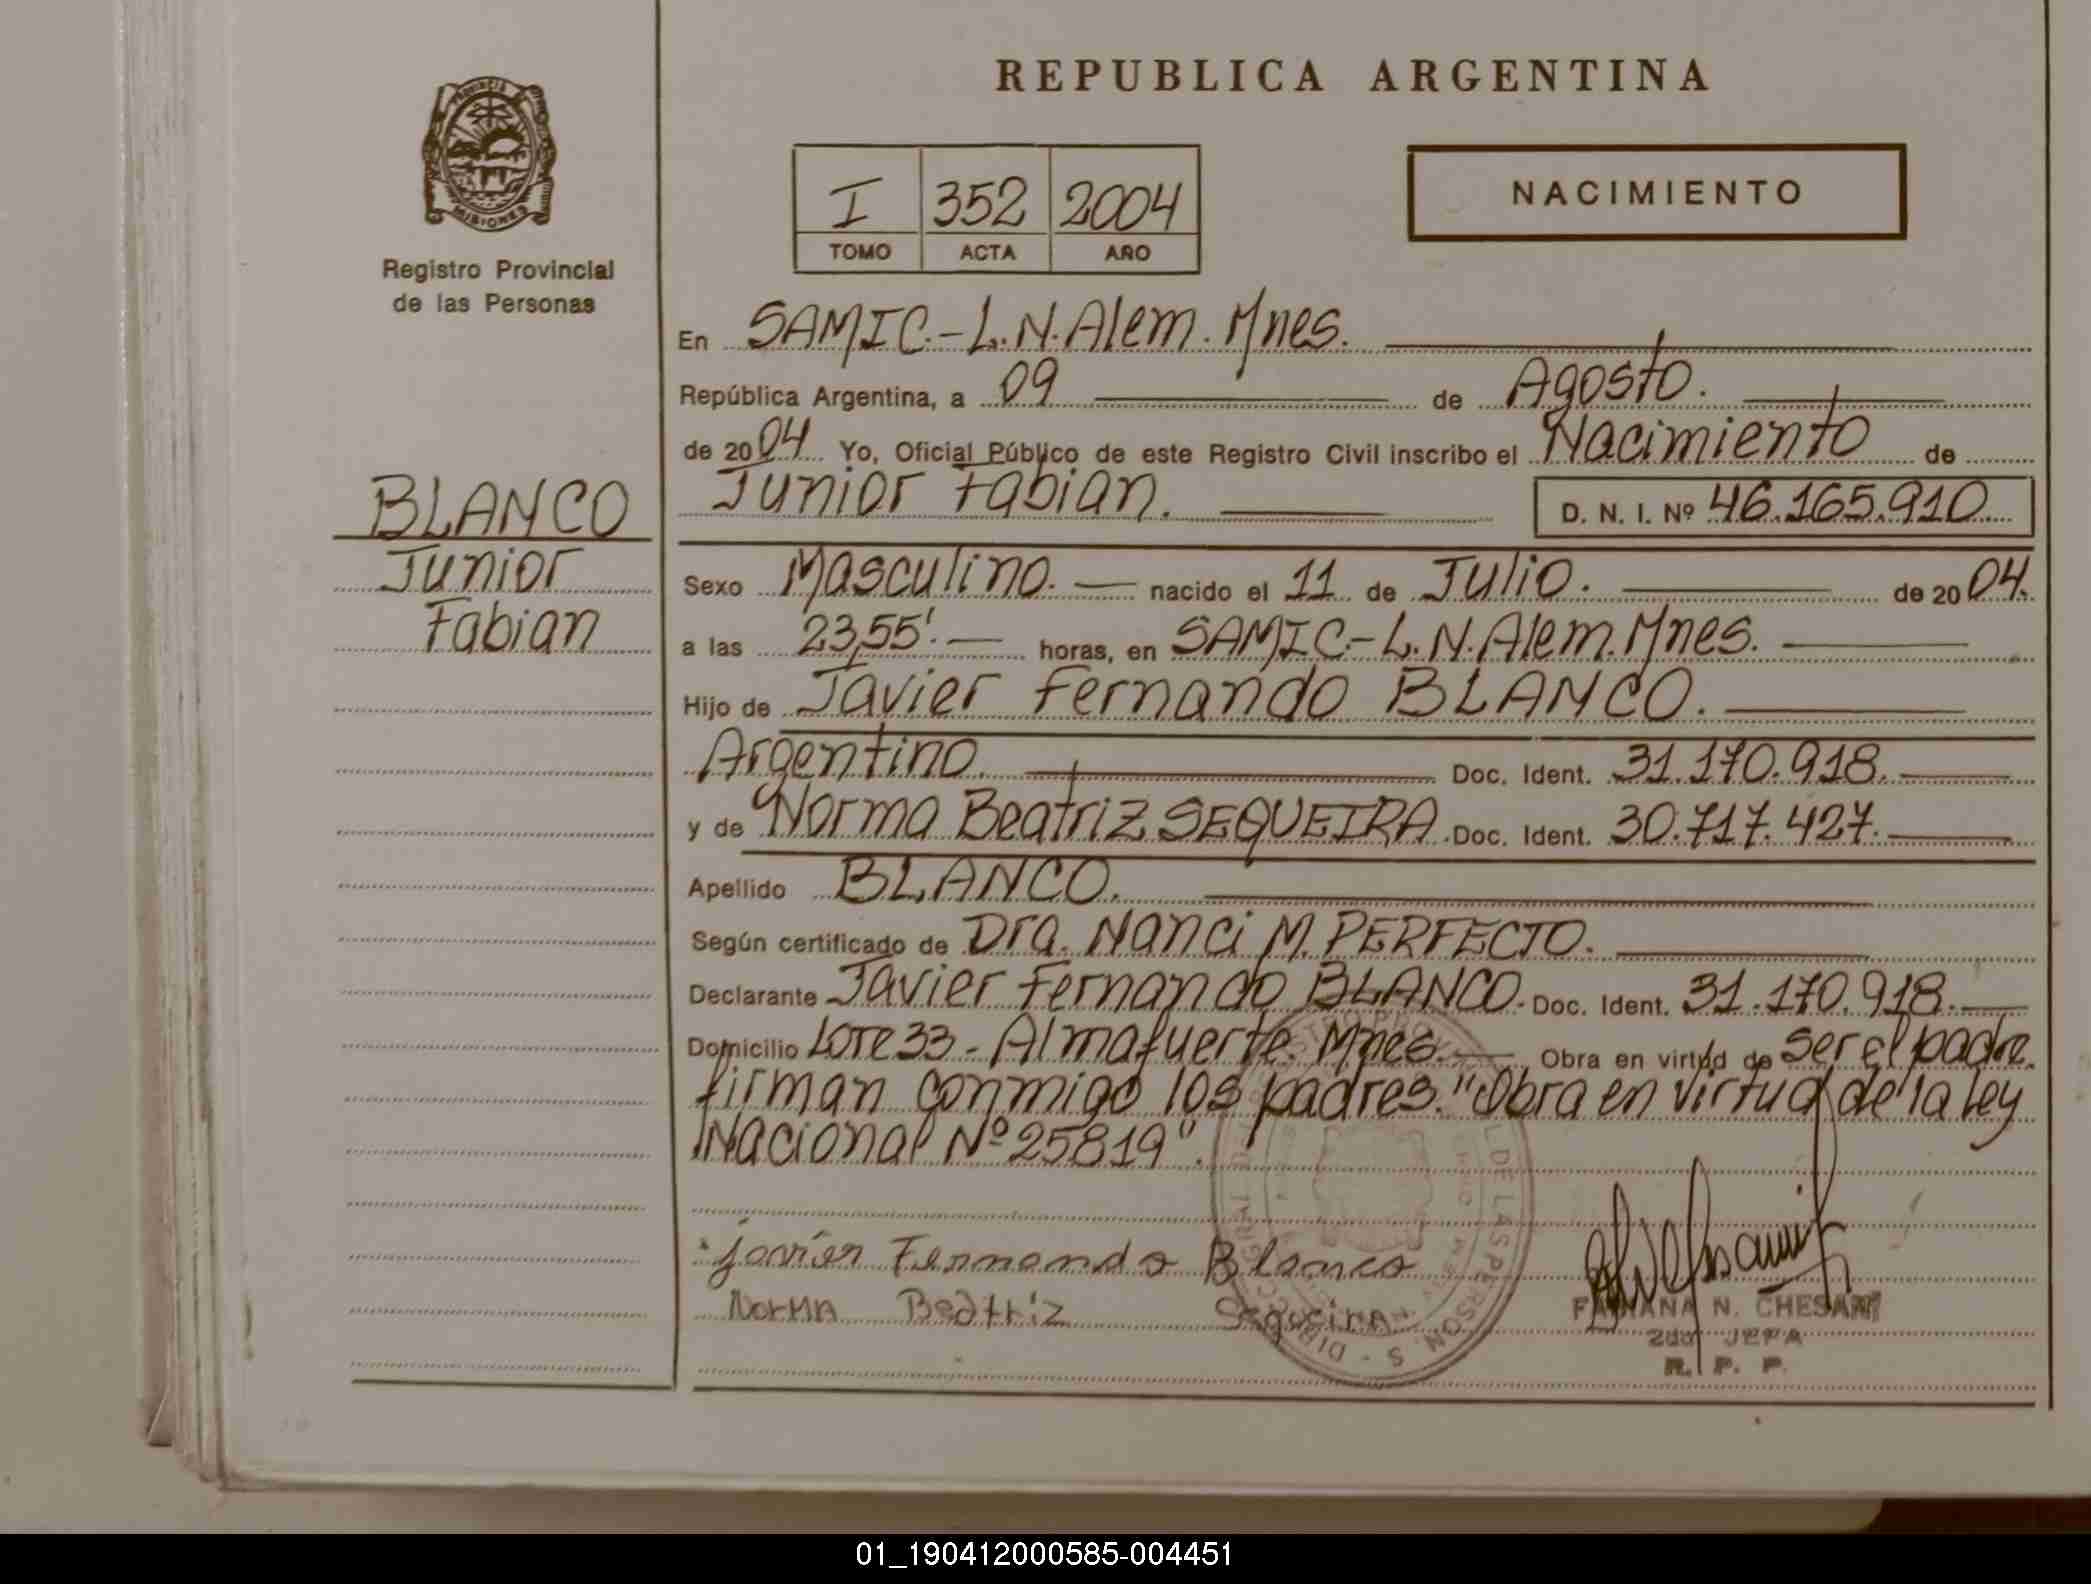 REPUBLICA ARGENTINA
PROVINCIA DE
MISIONES
Registro Provincial
de las Personas
I 352 2004
TOMO ACTA AÑO
NACIMIENTO
En SAMIC.-L.N.Alem.Mnes.
República Argentina, a 09 de Agosto.
de 2004 Yo, Oficial Público de este Registro Civil inscribo el Nacimiento de
Junior Fabian. D. N. I. Nº 46.165.910
BLANCO
Junior
Fabian
Sexo Masculino. nacido el 11 de Julio. de 2004.
a las 23,55'. horas, en SAMIC.-L.N.Alem.Mnes.
Hijo de Javier Fernando BLANCO.
Argentino Doc. Ident. 31.170.918.
y de Norma Beatriz SEQUEIRA. Doc. Ident. 30.717.427.
Apellido BLANCO.
Según certificado de Dra. Nanci M. PERFECTO.
Declarante Javier Fernando BLANCO. Doc. Ident. 31.170.918.
Domicilio Lote 33 - Almafuerte. Mnes. Obra en virtud de Ser el padre.
firman conmigo los padres. "Obra en virtud de la Ley
Nacional Nº 25819".
Javier Fernando Blanco
Norma Beatriz Sequeira
FABIANA N. CHESANI
2do JEFA
R. P. P.
01_190412000585-004451